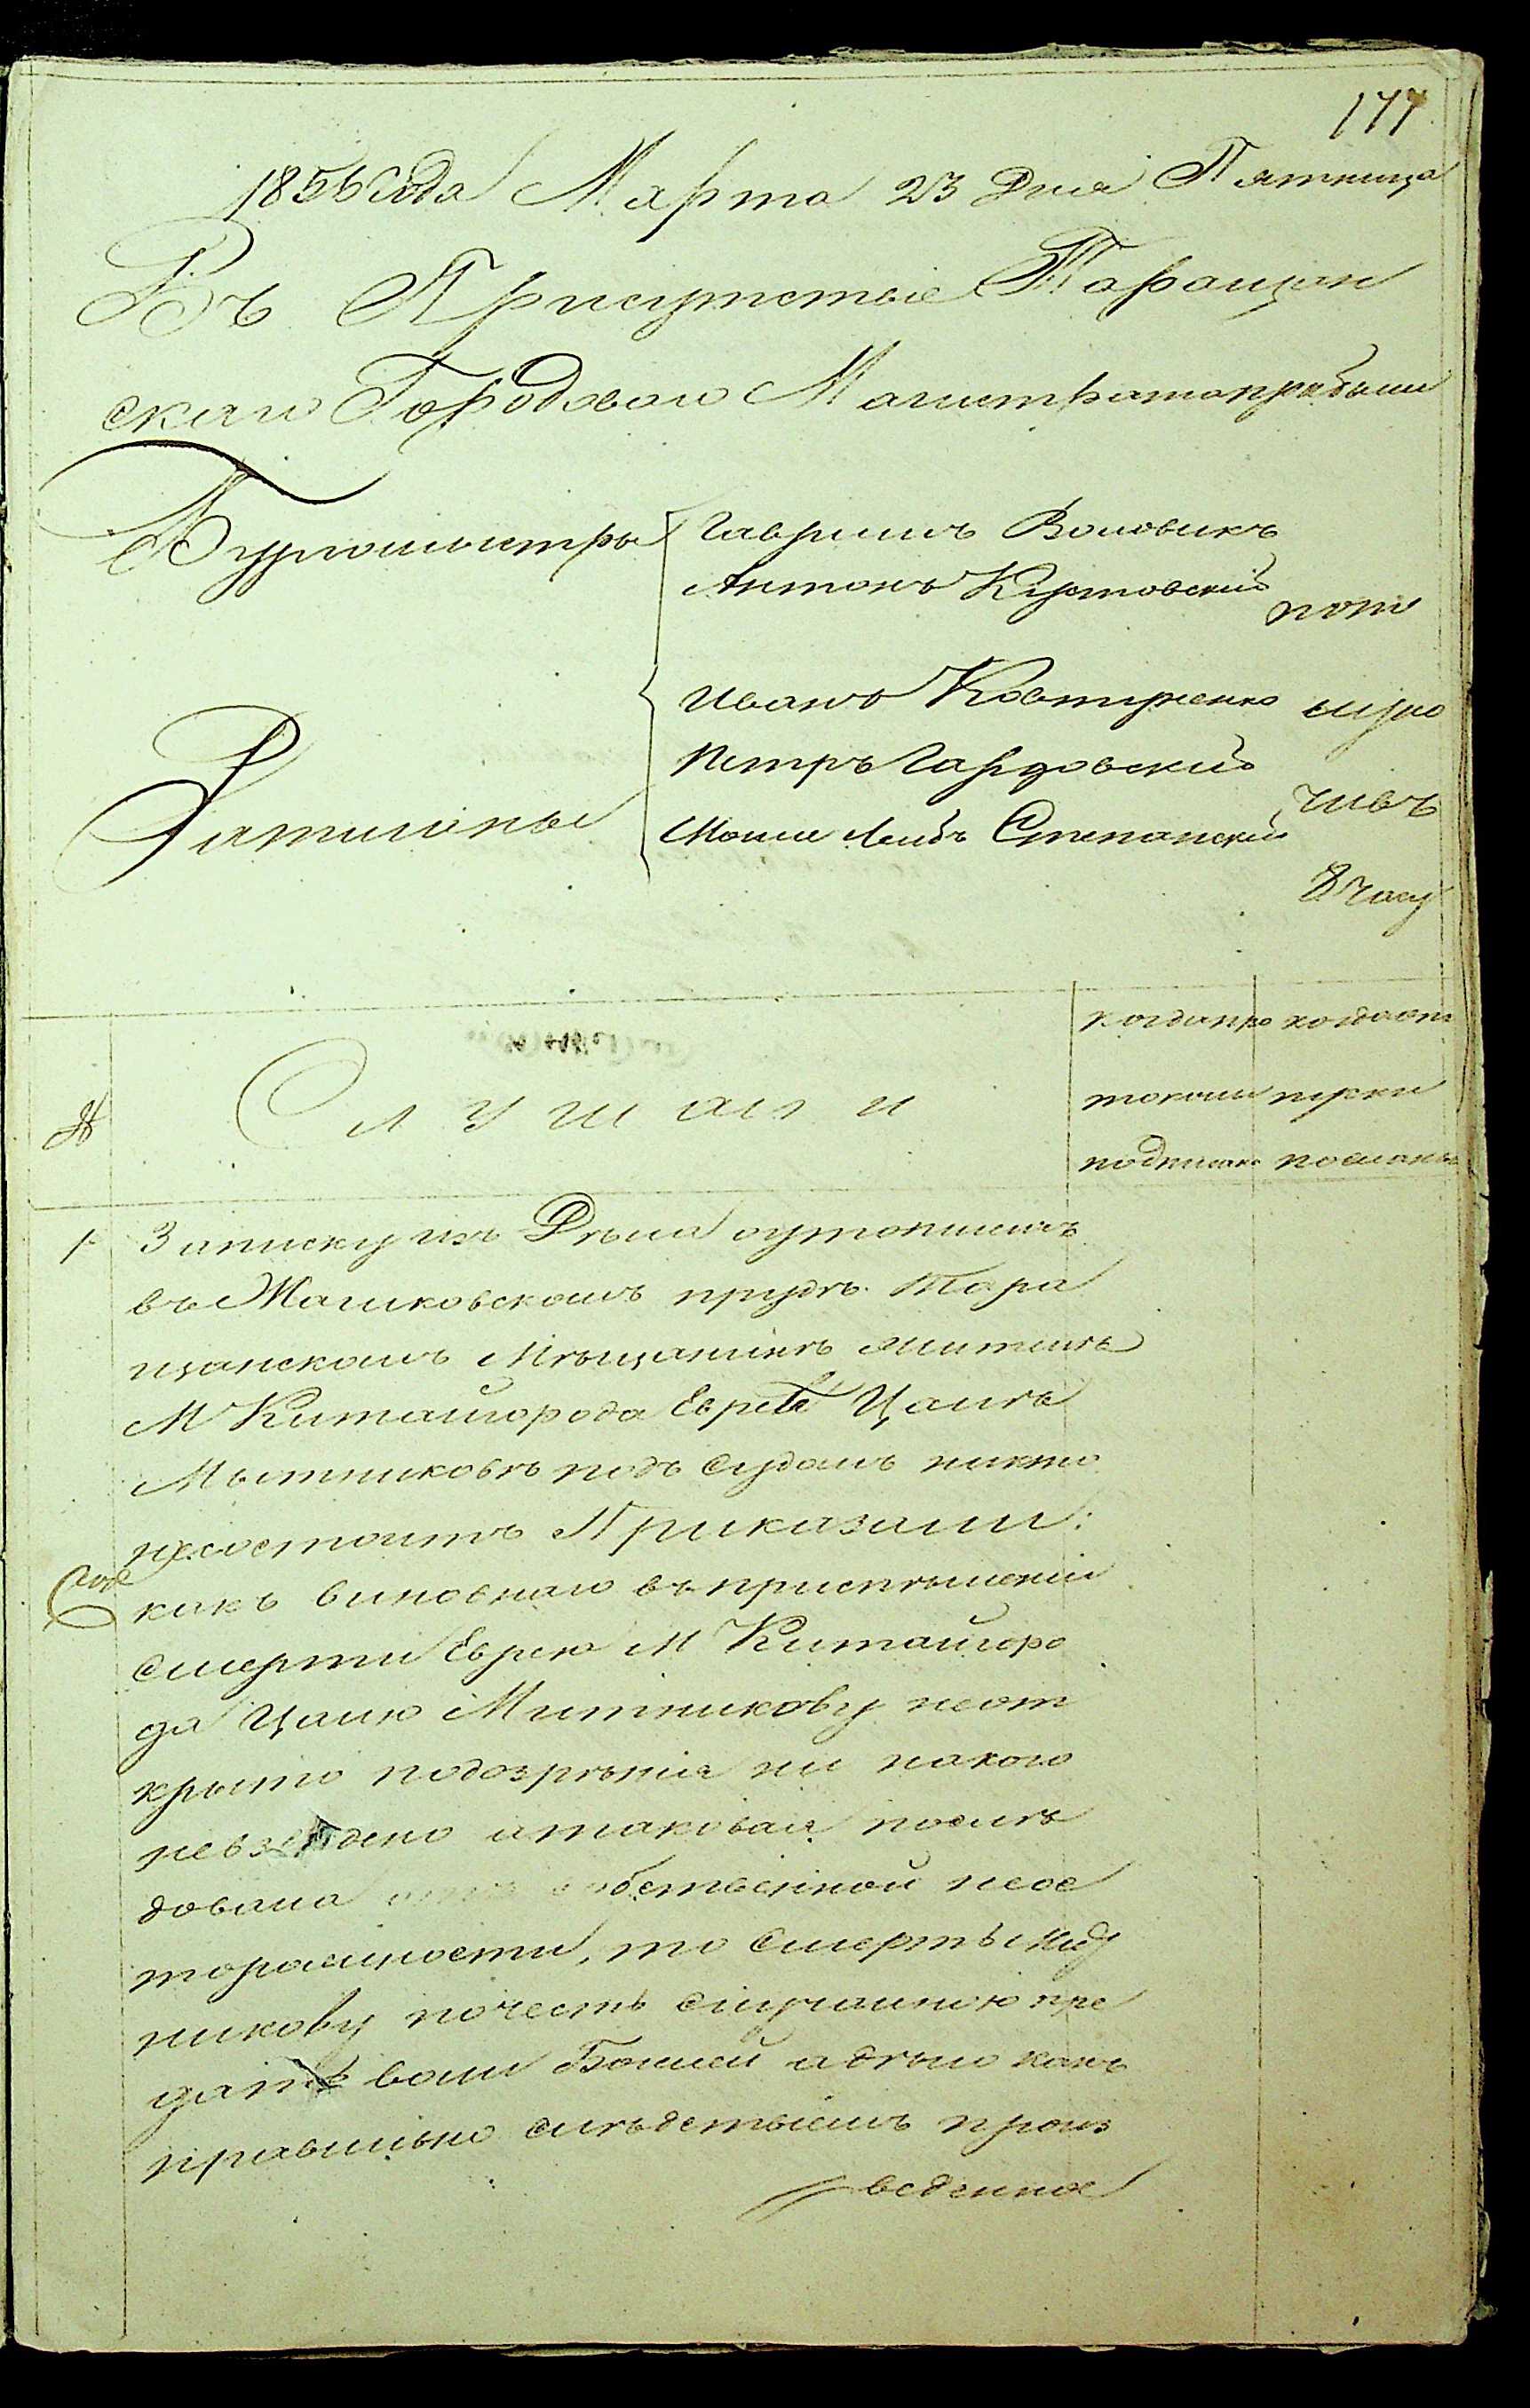 177
1856 года Марта 23 Дня Пятница
Въ Присутствіе Таращан
скаго Городоваго Магистрата прибыли
Бургомистры
Гавриилъ Воловикъ
Антонъ Кустовский
пото
Ратманы
Иванъ Ковтуненко
Петръ
Мошко Лейбъ Степанский
чивъ
8 часу
№
Слушали
когда про
токолъ
подписанъ
когда от
пуски
посланы
1
Записку изъ Дѣла о утопшемъ
въ Жашковскомъ прудѣ Тара
щанскомъ Мѣщанинѣ жителѣ
М Китайгорода Евреѣ Цалѣ
Мытниковѣ подъ судомъ никто
несостоитъ Приказали:
какъ виновнаго въ приспѣшеніи
смерти Еврею М Китайгоро
да Цалю Митникову неот
крыто подозрѣнія ни накого
невзведено а таковая послѣ
довала отъ собственной неос
торожности, то смерть Мыт
никову почесть случайною пре
дать воли Божией а дѣло какъ
правильно слѣдствіемъ произ
веденное